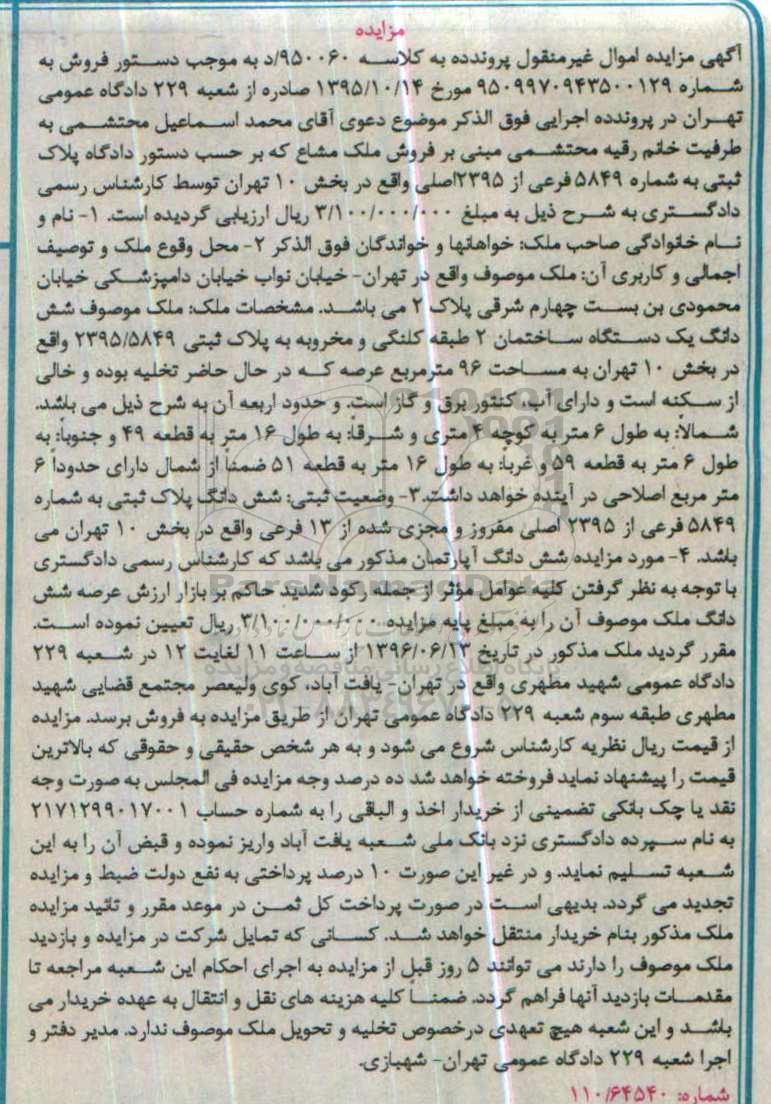 مزایده
آگهی مزایده اموال غیرمنقول پرونددده به کلاسه ۹۵۰۰۶۰/د به موجب دستور فروش به
شماره ۹۵۰۹۹۷۰۹۴۳۵۰۰۱۲۹ مورخ ۱۳۹۵/۱۰/۱۴ صادره از شعبه ۲۲۹ دادگاه عمومی
تهران در پروندده اجرایی فوق الذکر موضوع دعوی آقای محمد اسماعیل محتشمی به
طرفیت خانم رقیه محتشمی مبنی بر فروش ملک مشاع که بر حسب دستور دادگاه پلاک
ثبتی به شماره ۵۸۴۹ فرعی از ۲۳۹۵اصلی واقع در بخش ۱۰ تهران توسط کارشناس رسمی
دادگستری به شرح ذیل به مبلغ ۳/۱۰۰/۰۰۰/۰۰۰ ریال ارزیابی گردیده است. ۱- نام و
نام خانوادگی صاحب ملک: خواهانها و خواندگان فوق الذکر ۲- محل وقوع ملک و توصیف
اجمالی و کاربری آن: ملک موصوف واقع در تهران- خیابان نواب خیابان دامپزشکی خیابان
محمودی بن بست چهارم شرقی پلاک ۲ می باشد. مشخصات ملک: ملک موصوف شش
دانگ یک دستگاه ساختمان ۲ طبقه کلنگی و مخروبه به پلاک ثبتی ۲۳۹۵/۵۸۴۹ واقع
در بخش ۱۰ تهران به مساحت ۹۶ مترمربع عرصه که در حال حاضر تخلیه بوده و خالی
از سکنه است و دارای آب، کنتور برق و گاز است. و حدود اربعه آن به شرح ذیل می باشد.
شمالاً: به طول ۶ متر به کوچه ۴ متری و شرقاً: به طول ۱۶ متر به قطعه ۴۹ و جنوباً: به
طول ۶ متر به قطعه ۵۹ و غرباً: به طول ۱۶ متر به قطعه ۵۱ ضمناً از شمال دارای حدوداً ۶
متر مربع اصلاحی در آینده خواهد داشت.۳- وضعیت ثبتی: شش دانگ پلاک ثبتی به شماره
۵۸۴۹ فرعی از ۲۳۹۵ اصلی مفروز و مجزی شده از ۱۳ فرعی واقع در بخش ۱۰ تهران می
باشد. ۴- مورد مزایده شش دانگ آپارتمان مذکور می باشد که کارشناس رسمی دادگستری
با توجه به نظر گرفتن کلیه عوامل مؤثر از جمله رکود شدید حاکم بر بازار ارزش عرصه شش
دانگ ملک موصوف آن را به مبلغ پایه مزایده ۳/۱۰۰/۰۰۰/۰۰۰ ریال تعیین نموده است.
مقرر گردید ملک مذکور در تاریخ ۱۳۹۶/۰۶/۱۳ از ساعت ۱۱ لغایت ۱۲ در شعبه ۲۲۹
دادگاه عمومی شهید مطهری واقع در تهران- یافت آباد، کوی ولیعصر مجتمع قضایی شهید
مطهری طبقه سوم شعبه ۲۲۹ دادگاه عمومی تهران از طریق مزایده به فروش برسد. مزایده
از قیمت ریال نظریه کارشناس شروع می شود و به هر شخص حقیقی و حقوقی که بالاترین
قیمت را پیشنهاد نماید فروخته خواهد شد ده درصد وجه مزایده فی المجلس به صورت وجه
نقد یا چک بانکی تضمینی از خریدار اخذ و الباقی را به شماره حساب ۲۱۷۱۲۹۹۰۱۷۰۰۱
به نام سپرده دادگستری نزد بانک ملی شعبه یافت آباد واریز نموده و قبض آن را به این
شعبه تسلیم نماید. و در غیر این صورت ۱۰ درصد پرداختی به نفع دولت ضبط و مزایده
تجدید می گردد. بدیهی است در صورت پرداخت کل ثمن در موعد مقرر و تائید مزایده
ملک مذکور بنام خریدار منتقل خواهد شد. کسانی که تمایل شرکت در مزایده و بازدید
ملک موصوف را دارند می توانند ۵ روز قبل از مزایده به اجرای احکام این شعبه مراجعه تا
مقدمات بازدید آنها فراهم گردد. ضمناً کلیه هزینه های نقل و انتقال به عهده خریدار می
باشد و این شعبه هیچ تعهدی درخصوص تخلیه و تحویل ملک موصوف ندارد. مدیر دفتر و
اجرا شعبه ۲۲۹ دادگاه عمومی تهران- شهبازی.
شماره: ۱۱۰/۶۴۵۴۰
ParsNamadData